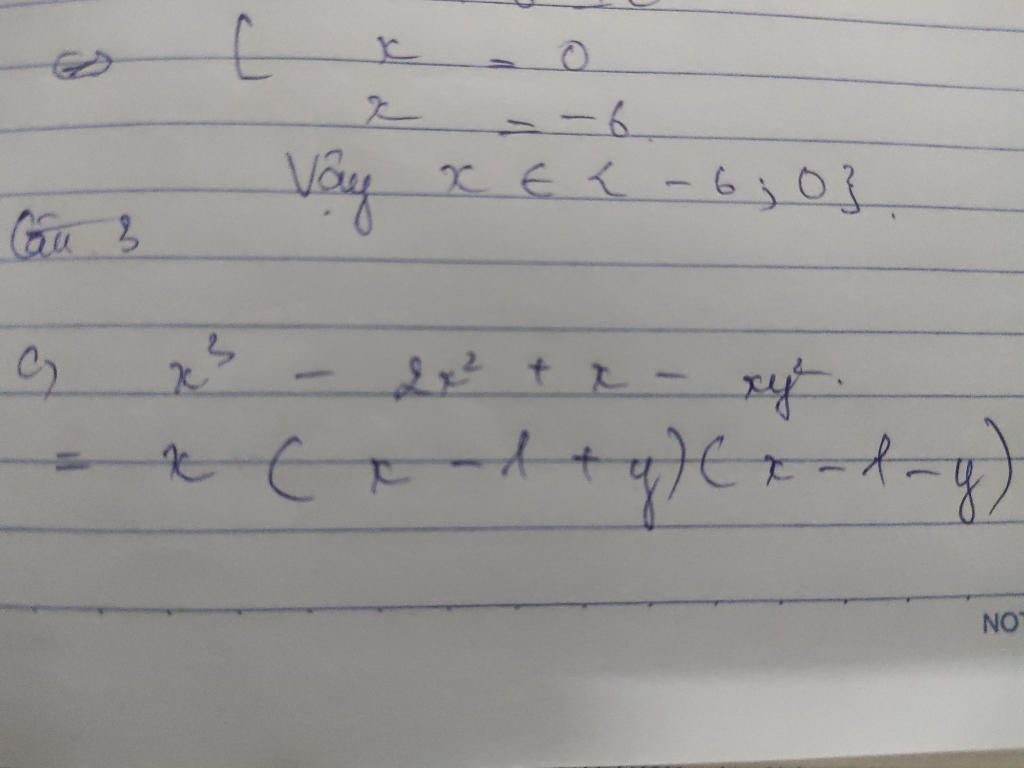 ⇔ [ x = 0
x = -6
Vậy x ∈ { -6; 0}.
Câu 3
c) x³ - 2x² + x - xy².
= x ( x - 1 + y)( x - 1 - y)